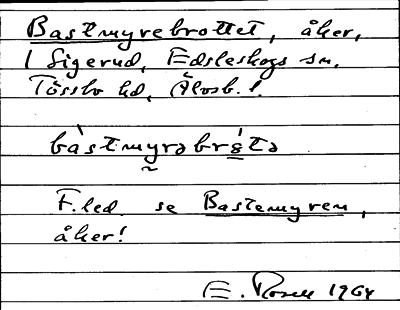 Bastmyrebrottet, åker,
1 Sigerud, Edsleskogs sn.
Tössbo hd, Älvsb. l.
bàstmyrəbrɷ́tə
F. led se Bastemyren,
åker!
E. Rosell 1964